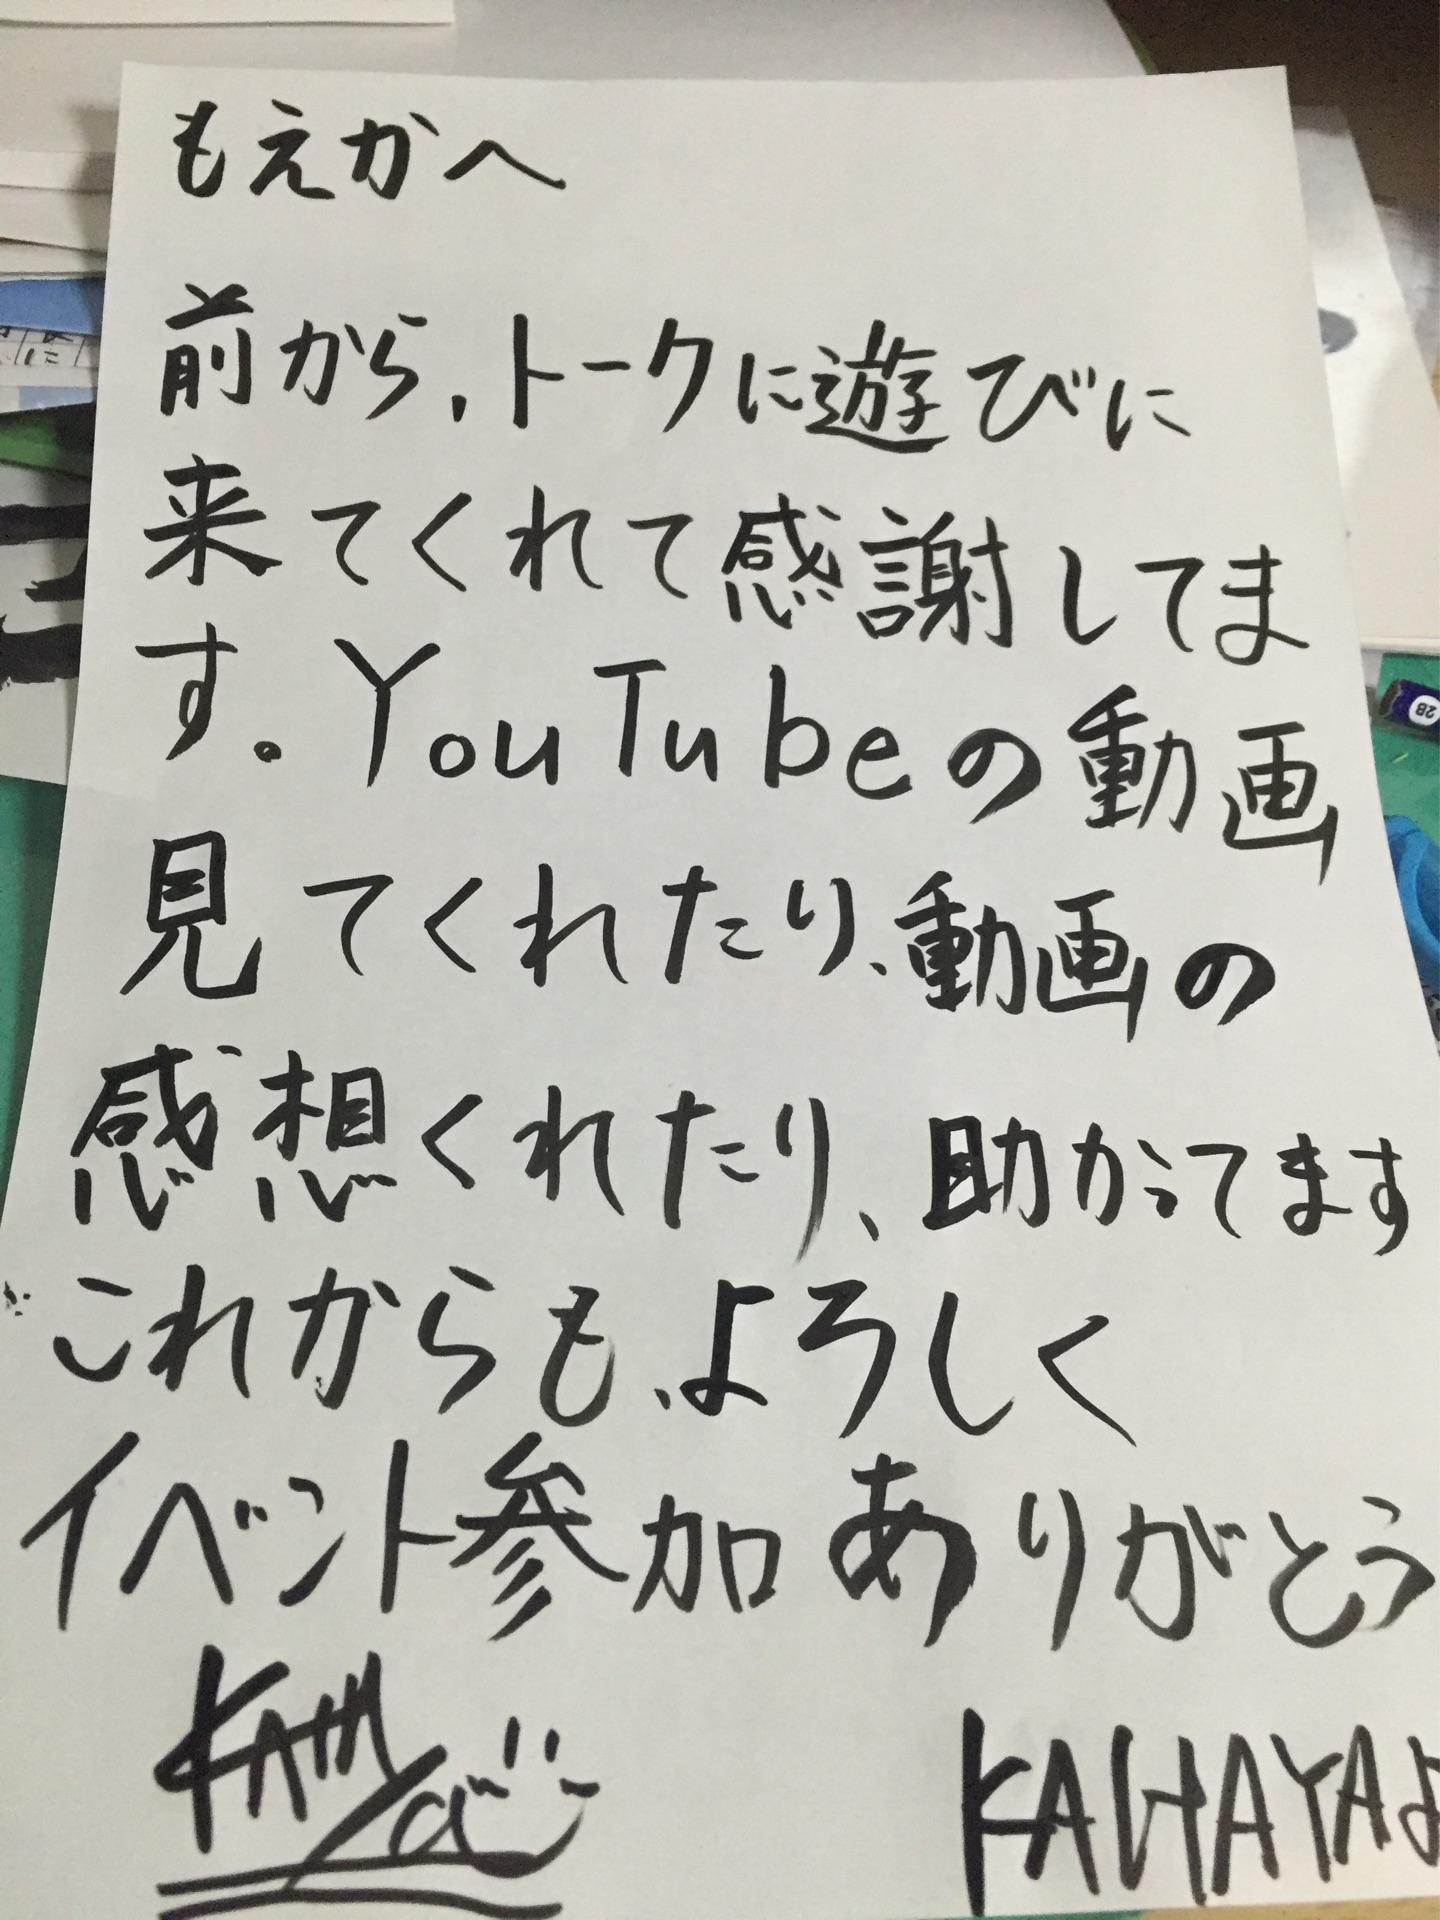 もえかへ
前から、トークに遊びに
来てくれて感謝してま
す。YouTubeの動画
見てくれたり、動画の
感想くれたり、助かってます
これからも、よろしく
イベント参加ありがとう
KAWAYAよ
2B